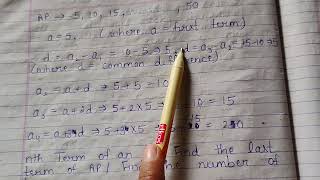 AP → 5, 10, 15, 50
a = 5, (where a = first term)
d = a₂ - a₁ = 10 - 5 ⇒ 5, d = a₃ - a₂ = 15 - 10 ⇒ 5
(where d = common difference)
a₂ = a + d ⇒ 5 + 5 = 10
a₃ = a + 2d ⇒ 5 + 2 × 5 = 5 + 10 = 15
a₄ = a + 3d ⇒ 5 + × 5 ⇒ 5 + 15 = 20
nth Term of an Find the last
term of AP / Find the number of